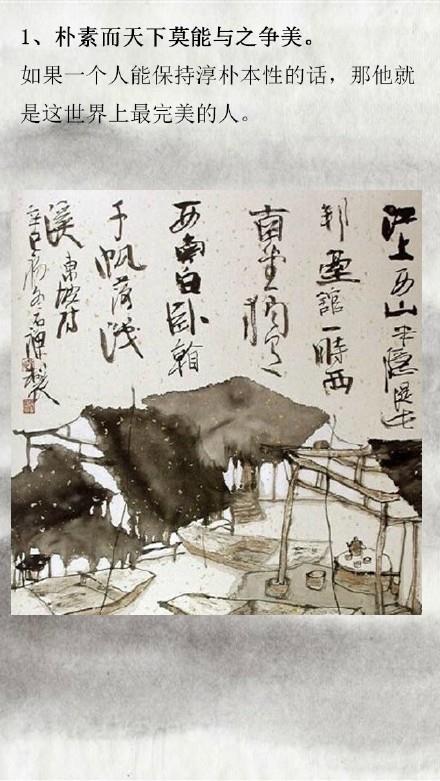 1、朴素而天下莫能与之争美。
如果一个人能保持淳朴本性的话，那他就
是这世界上最完美的人。
江上西山半隱堤此
邦臺館一時西
南堂獨有
西南向卧看
千帆落浅
溪
東坡詩
辛巳